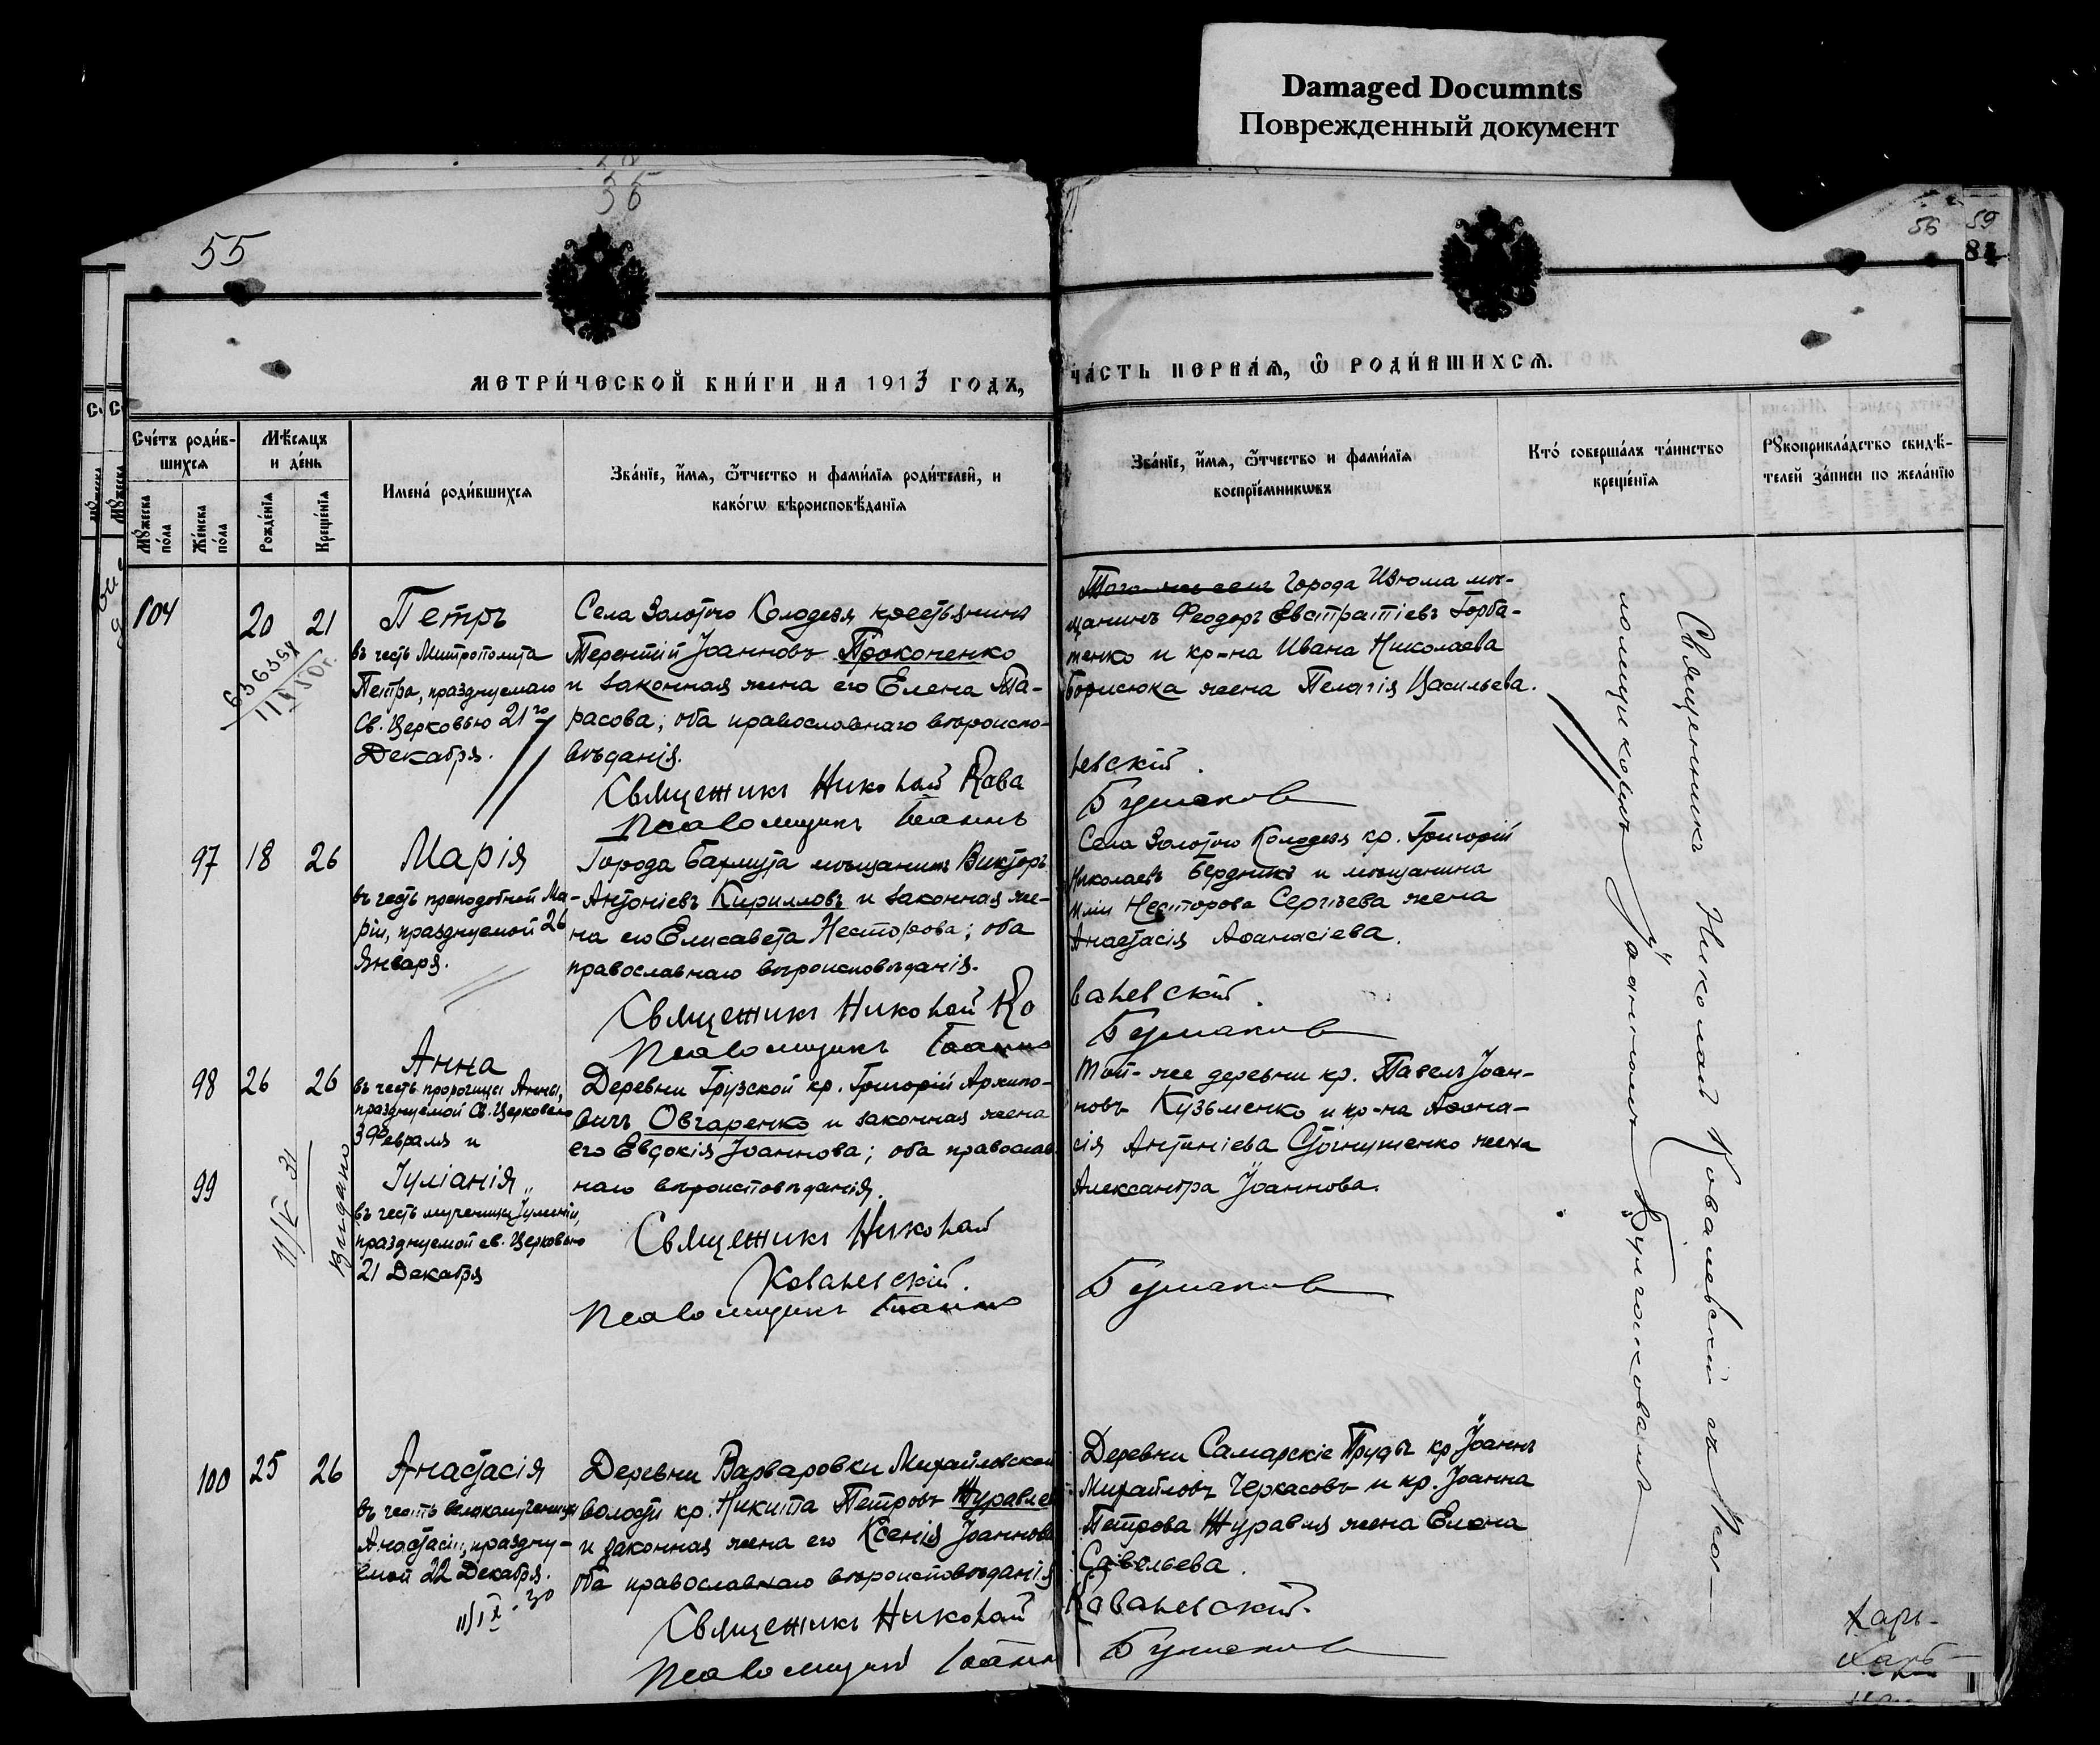 Damaged Documnts
Поврежденный документ
35
55
56
59
МЕТРИ́ЧЕСКОЙ КНИ́ГИ НА 1913 ГОДЪ,
ЧА́СТЬ ПЕРВАЯ, Ѽ РОДИ́ВШИХСѦ.
Сче́тъ роди́в-
шихся
Мѣсяцъ
и де́нь
Мꙋжеска
по́ла
Же́нска
по́ла
Рожде́нїя
Креще́нїя
Имена́ роди́вшихся
Зва́нїе, и́мя, ѻ҆́тчество и фами́лїя роди́телей, и
како́гѡ вѣроисповѣ́данїя
Зва́нїе, и́мя, ѻ҆́тчество и фами́лїя
воспрїе́мникѡвъ
Кто́ соверша́лъ та́инство
креще́нїя
Рꙋкоприкла́дство свидѣ́-
телей за́писи по жела́нїю
104
20
21
Петръ
въ честь Митрополита
Петра, празднуемаго
Св. Церковью 21го
Декабря.
Села Золотого Колодезя крестьянинъ
Терентій Іоанновъ Прокопенко
и законная жена его Елена Та-
расова; оба православнаго вѣроиспо-
вѣданія.
Священникъ Николай Кова
Псаломщикъ Іоаннъ
Того же села Города Изюма мѣ-
щанинъ Феодоръ Евстратіевъ Горба-
тенко и кр-на Ивана Николаева
Борисюка жена Пелагія Васильева.
левскій.
Булгаковъ
97
18
26
Марія
въ честь преподобной Ма-
ріи, празднуемой 26
Января.
Города Бахмута мѣщанинъ Викторъ
Антоніевъ Кирилловъ и законная же-
на его Елисавета Несторова; оба
православнаго вѣроисповѣданія.
Священникъ Николай Ко
Псаломщикъ Іоаннъ
Села Золотого Колодезя кр. Григорій
Николаевъ Бердникъ и мѣщанина
Иліи Несторова Сергѣева жена
Анастасія Аѳанасіева.
валевскій.
Булгаковъ
98
26
26
Анна
въ честь пророчицы Анны,
празднуемой Св. Церковью
3 Февраля и
99
11/V 31
Выдано
Іуліанія
въ честь мученицы Іуліаніи,
празднуемой св. Церковью
21 Декабря
Деревни Грузской кр. Григорій Архипо-
вичъ Овчаренко и законная жена
его Евдокія Іоаннова; оба православ-
наго вѣроисповѣданія.
Священникъ Николай
Ковалевскій.
Псаломщикъ Іоаннъ
Той-же деревни кр. Павелъ Іоан-
новъ Кузьменко и кр-на Аѳана-
сія Антоніева жена
Александра Іоаннова.
Булгаковъ
100
25
26
Анастасія
въ честь великомученицы
Анастасіи, праздну-
емой 22 Декабря.
Деревни Варваровки Михайловской
волости кр. Никита Петровъ Журавле
и законная жена его Ксенія Іоаннова
оба православнаго вѣроисповѣданія
Священникъ Николай
Псаломщикъ Іоаннъ
Деревни Самарскіе Пруды кр. Іоаннъ
Михайловъ Черкасовъ и кр. Іоанна
Петрова Журавля жена Елена
Савельева.
Ковалевскій.
Булгаковъ
Священникъ Николай Ковалевскій съ Пса-
ломщикомъ Іоанномъ Булгаковымъ
Харь-